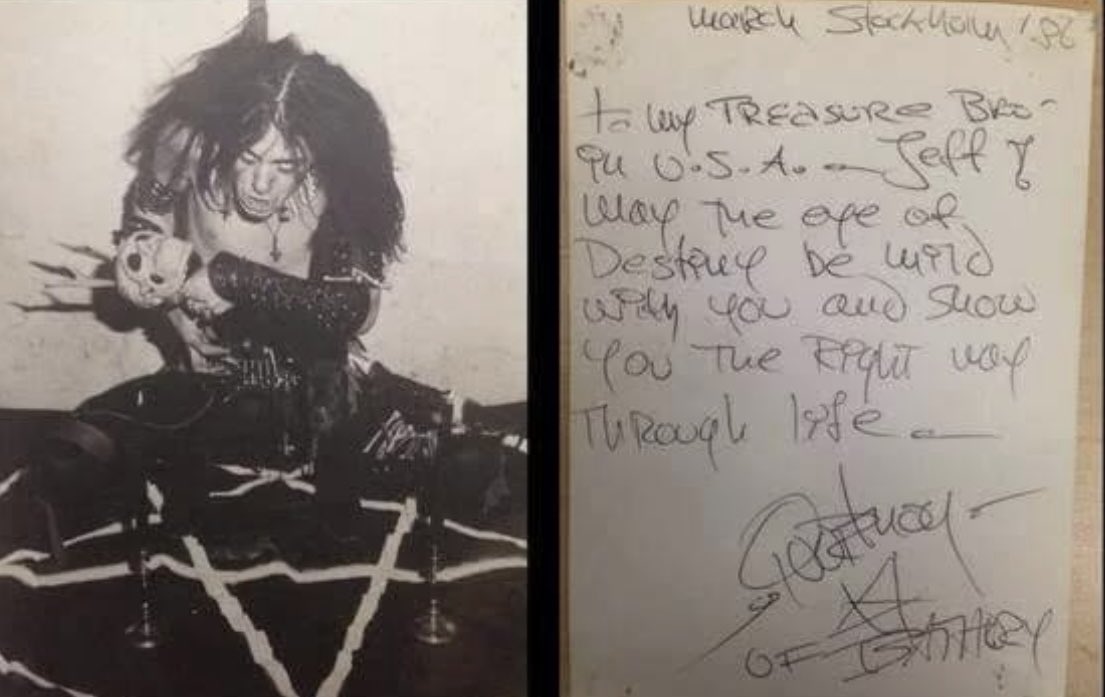 March Stockholm '86
to my TREASURE BRO-
in U.S.A. — Jeff
May the eye of
Destiny be mild
with you and show
you The Right way
Through life —
Quorthon
OF BATHORY